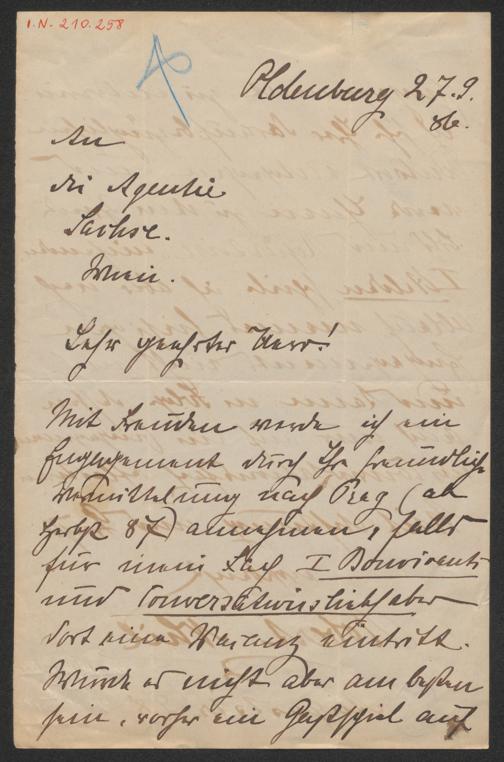 I.N. 210.258
Oldenburg 27.9.
86.
An
die Agentie
Sachse.
Wien.
Sehr geehrter Herr!
Mit Freuden werde ich ein
Engagement durch Ihr freundliche
Vermittelung nach Prag (ab
Herbst 87) annehmen, falls
für mein Fach I Bonvivants
und Conversationsliebhaber
dort eine Vacanz eintritt.
Würde es nicht aber am besten
sein, vorher ein Gastspiel auf